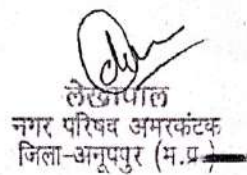 लेखापाल
नगर परिषद अमरकंटक
जिला-अनूपपुर (म.प्र.)